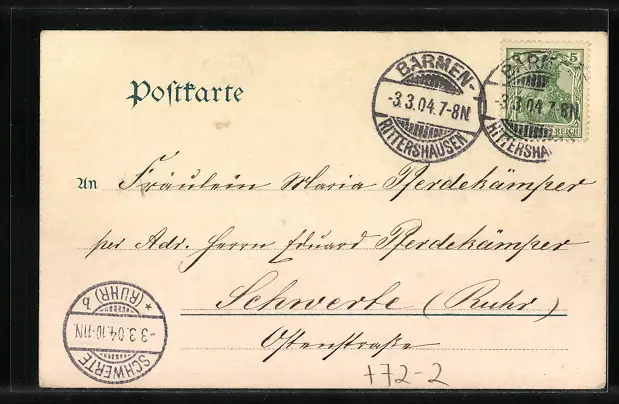 Postkarte
BARMEN-RITTERSHAUSEN
-3.3.04.7-8N.
BARMEN-RITTERSHAUSEN
-3.3.04.7-8N.
5
REICH
An Fräulein Maria Pferdekämper
per Adr. Herrn Eduard Pferdekämper
Schwerte (Ruhr)
Ostenstraße
SCHWERTE * (RUHR) b
-3.3.04.10-11N.
+72-2